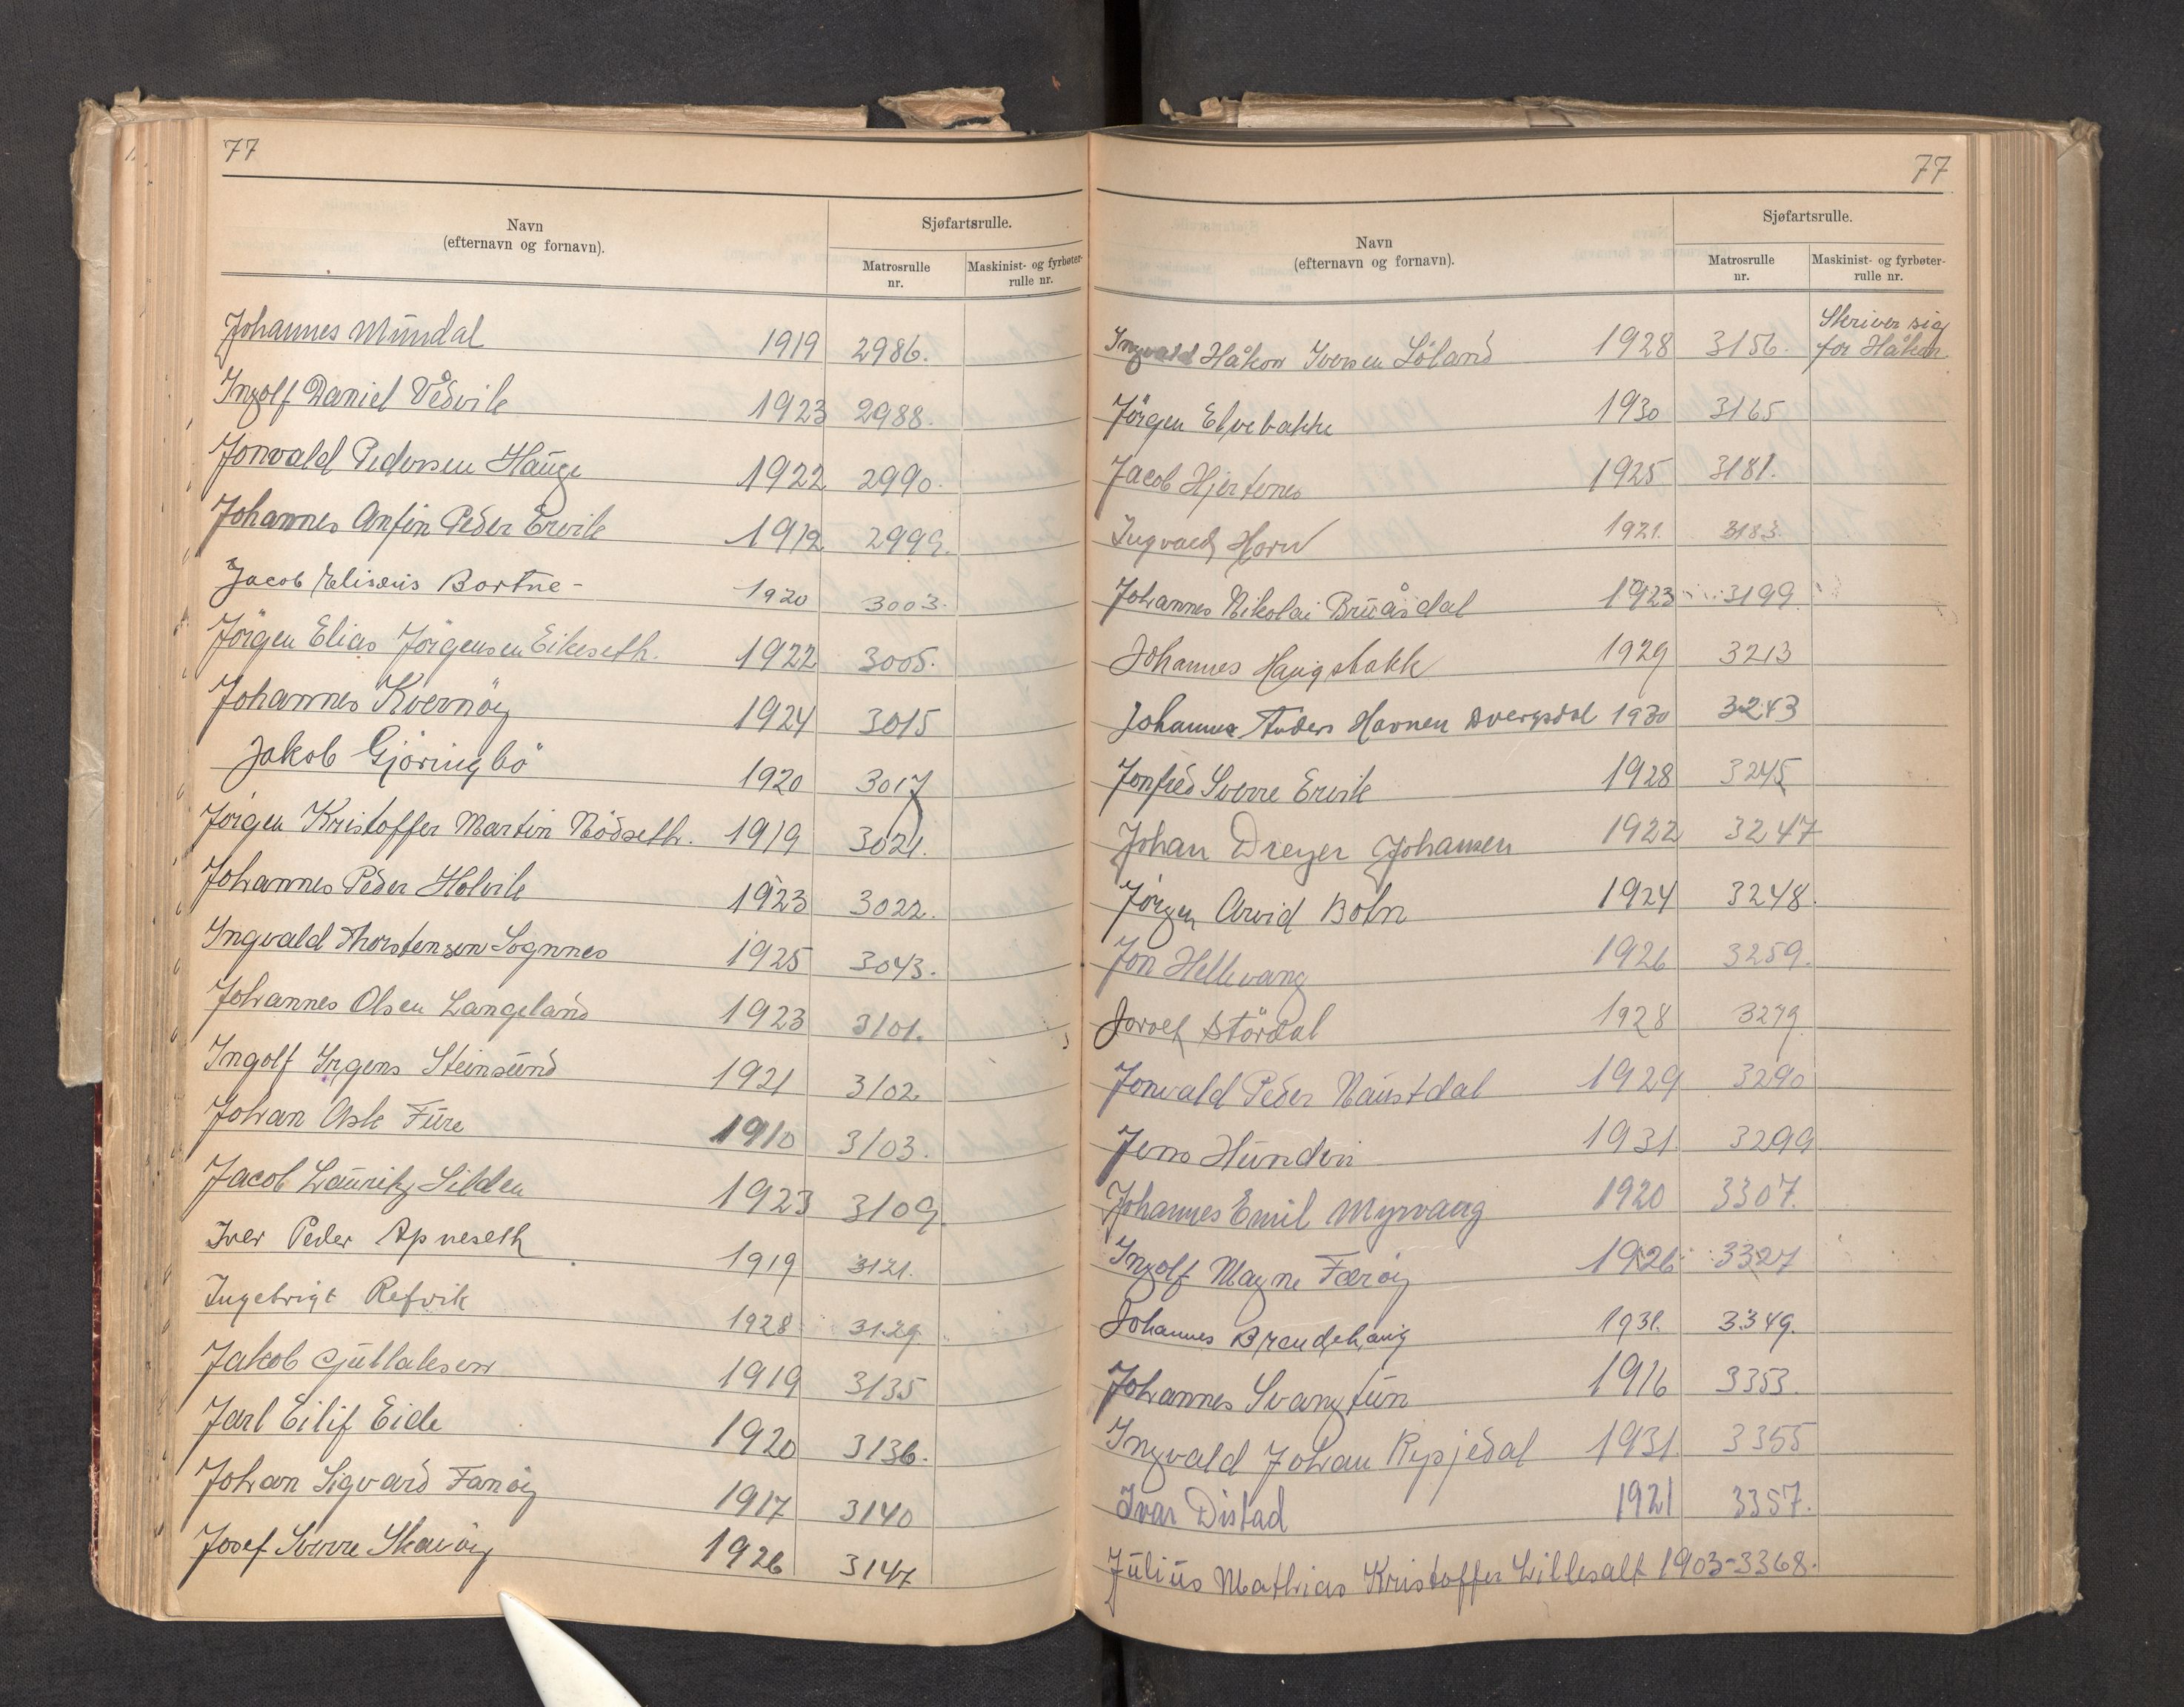 77
Navn
(efternavn og fornavn).
Sjøfartsrulle.
Matrosrulle
nr.
Maskinist- og fyrbøter-
rulle nr.
Johannes Mündal 1919 2986.
Ingolf Daniel Vedvik 1923 2988.
Jonvald Pedersen Hauge 1922 2990.
Johannes Anfin Peder Ervik 1912 2999.
Jacob Eliseus Bortne - 1920 3003.
Jörgen Elias Jörgensen Eikeseth. 1922 3005.
Johannes Kvernöy 1924 3015
Jakob Gjöringbö 1920 3017
Jörgen Kristoffer Martin Nödseth. 1919 3021.
Johannes Peder Holvik 1923 3022.
Ingvald Thorstensen Sognnes 1925 3043.
Johannes Olsen Langeland 1923 3101.
Ingolf Irgens Steinsund 1921 3102.
Johan Ask Füre 1910 3103.
Jacob Lauritz Silden 1923 3109.
Iver Peder Apneseth 1919 3121.
Ingebrigt Refvik 1928 3129.
Jakob Gjüllaksen 1919 3135
Jarl Eilif Eide 1920 3136.
Johan Sigvard Fanöy 1917 3140
Josef Sverre Skavöy 1926 3147
77
Navn
(efternavn og fornavn).
Sjøfartsrulle.
Matrosrulle
nr.
Maskinist- og fyrbøter-
rulle nr.
Ingvald Håkon Iversen Löland 1928 3156. Skriver sig
for Håkon.
Jörgen Elvebakke 1930 3165
Jacob Hjertenes 1925 3181.
Ingvald Horn 1921. 3183.
Johannes Nikolai Bruåsdal 1923 3199
Johannes Haugstakk 1929 3213
Johannes Anders Havnen Dvergsdal 1930 3243
Jonfred Sverre Ervik 1928 3245
Johan Dreyer Johansen 1922 3247
Jörgen Arvid Botn 1924 3248.
Jon Hellevang 1926 3259.
Jorolf Stördal 1928 3279
Jonvald Peder Naustdal 1929 3290
Jens Hundvin 1931. 3299
Johannes Emil Myrvang 1920 3307.
Ingolf Magne Færöy 1926 3327
Johannes Brendehaug 1931. 3349.
Johannes Svangtun 1916 3353.
Ingvald Johan Rypjedal 1931. 3355
Ivar Distad 1921 3357.
Jülius Mathias Kristoffer Lillesalt 1903-3368.